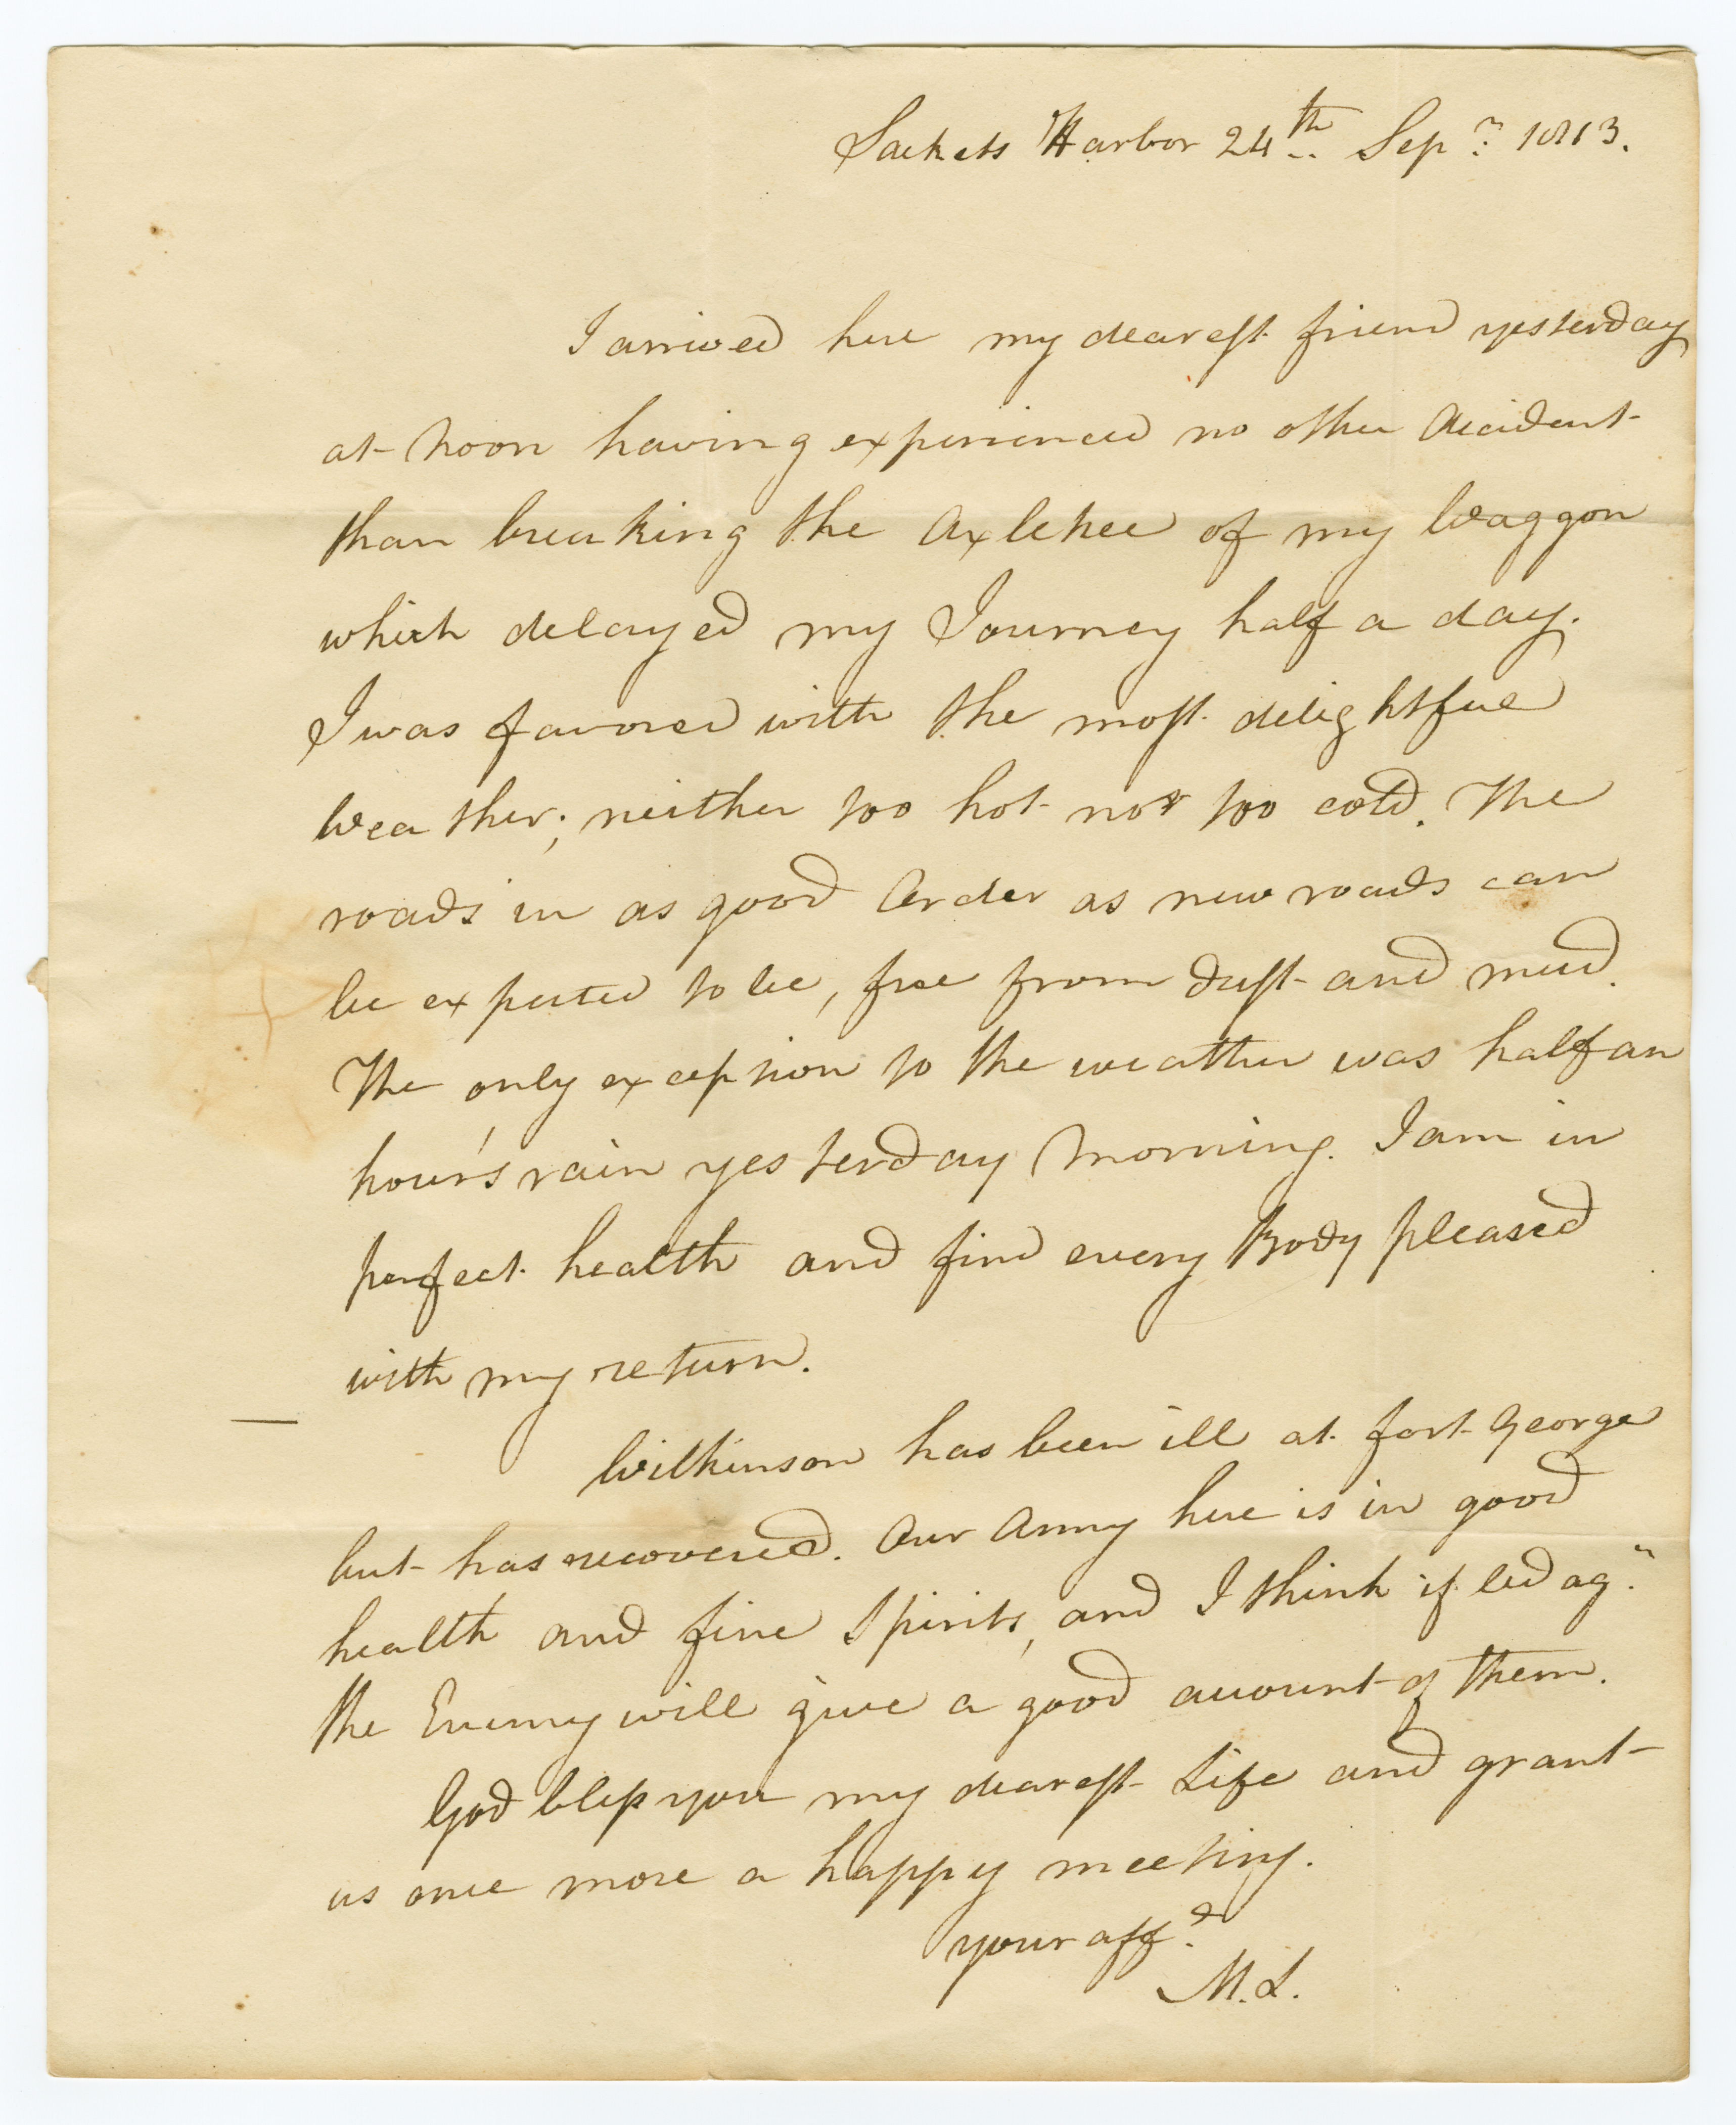 Sackets Harbor 24th Sepr 1813.
I arrived here my dearest friend yesterday
at Noon having experienced no other Accident
than breaking the Axletree of my Waggon
which delayed my Journey half a day.
I was favored with the most delightful
Weather; neither too hot nor too cold. The
roads in as good Order as new roads can
be expected to be, free from dust and mud.
The only exception to the weather was half an
hour's rain yesterday Morning. I am in
perfect health and find every Body pleased
with my return.
— Wilkinson has been ill at fort George
but has recovered. Our Army here is in good
health and fine Spirits, and I think if led agn
the Enemy will give a good account of them.
God bless you my dearest Life and grant
us once more a happy meeting.
your affe
M. L.